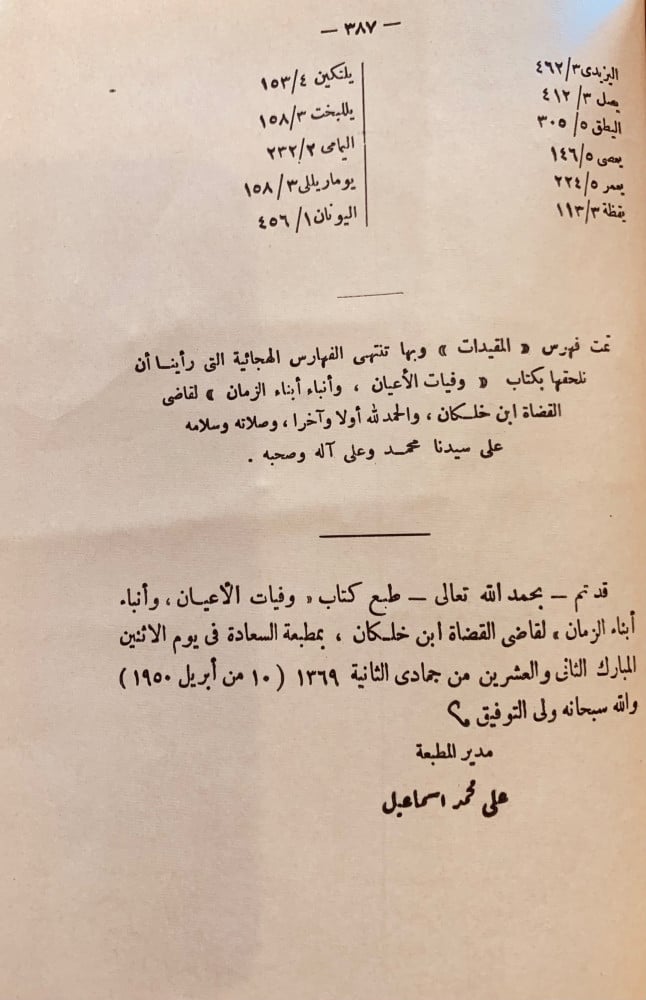 — ٣٨٧ —
اليزيدى ٤٦٢/٣
يصل ٤١٢/٣
اليطق ٣٠٥/٥
يعصى ١٤٦/٥
يعمر ٢٢٤/٥
يقظة ١١٣/٣
يلتكين ١٥٣/٤
يللبخت ١٥٨/٣
اليمامى ٢٣٢/٢
يوماريللى ١٥٨/٣
اليونان ٤٥٦/١
تمت فهرس « المقيدات » وبها تنتهى الفهارس الهجائية التى رأينا أن
نلحقها بكتاب « وفيات الأعيان ، وأنباء أبناء الزمان » لقاضى
القضاة ابن خلكان ، والحمد لله أولا وآخرا ، وصلاته وسلامه
على سيدنا محمد وعلى آله وصحبه .
قد تم — بحمد الله تعالى — طبع كتاب « وفيات الأعيان ، وأنباء
أبناء الزمان » لقاضى القضاة ابن خلكان ، بمطبعة السعادة فى يوم الاثنين
المبارك الثانى والعشرين من جمادى الثانية ١٣٦٩ ( ١٠ من أبريل ١٩٥٠ )
والله سبحانه ولى التوفيق
مدير المطبعة
على محمد اسماعيل